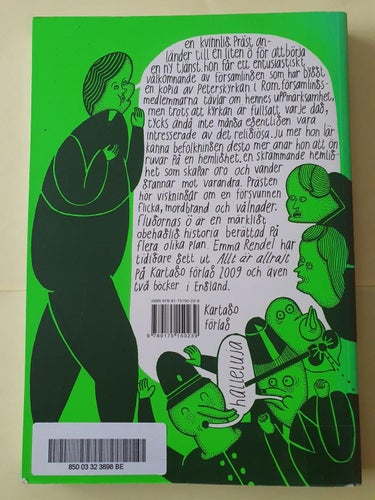 en kvinnlig präst an-
länder till en liten ö för att börja
en ny tjänst. hon får ett entusiastiskt
välkomnande av församlingen som har byggt
en kopia av Peterskyrkan i Rom. församlings-
medlemmarna tävlar om hennes uppmärksamhet,
men trots att kyrkan är fullsatt varje dag,
tycks ändå inte många egentligen vara
intresserade av det religiösa. Ju mer hon lär
känna befolkningen desto mer anar hon att ön
ruvar på en hemlighet, en skrämmande hemlig-
het som skapar oro och vänder
grannar mot varandra. Prästen
hör viskningar om en försvunnen
flicka, mordbrand och vålnader.
Flugornas ö är en märkligt
obehaglig historia berättad på
flera olika plan. Emma Rendel har
tidigare gett ut Allt är allright
på Kartago förlag 2009 och även
två böcker i England.
ISBN 978-91-75150-23-9
9 789175 150239
Kartago
förlag
halleluja
850 03 32 3898 BE